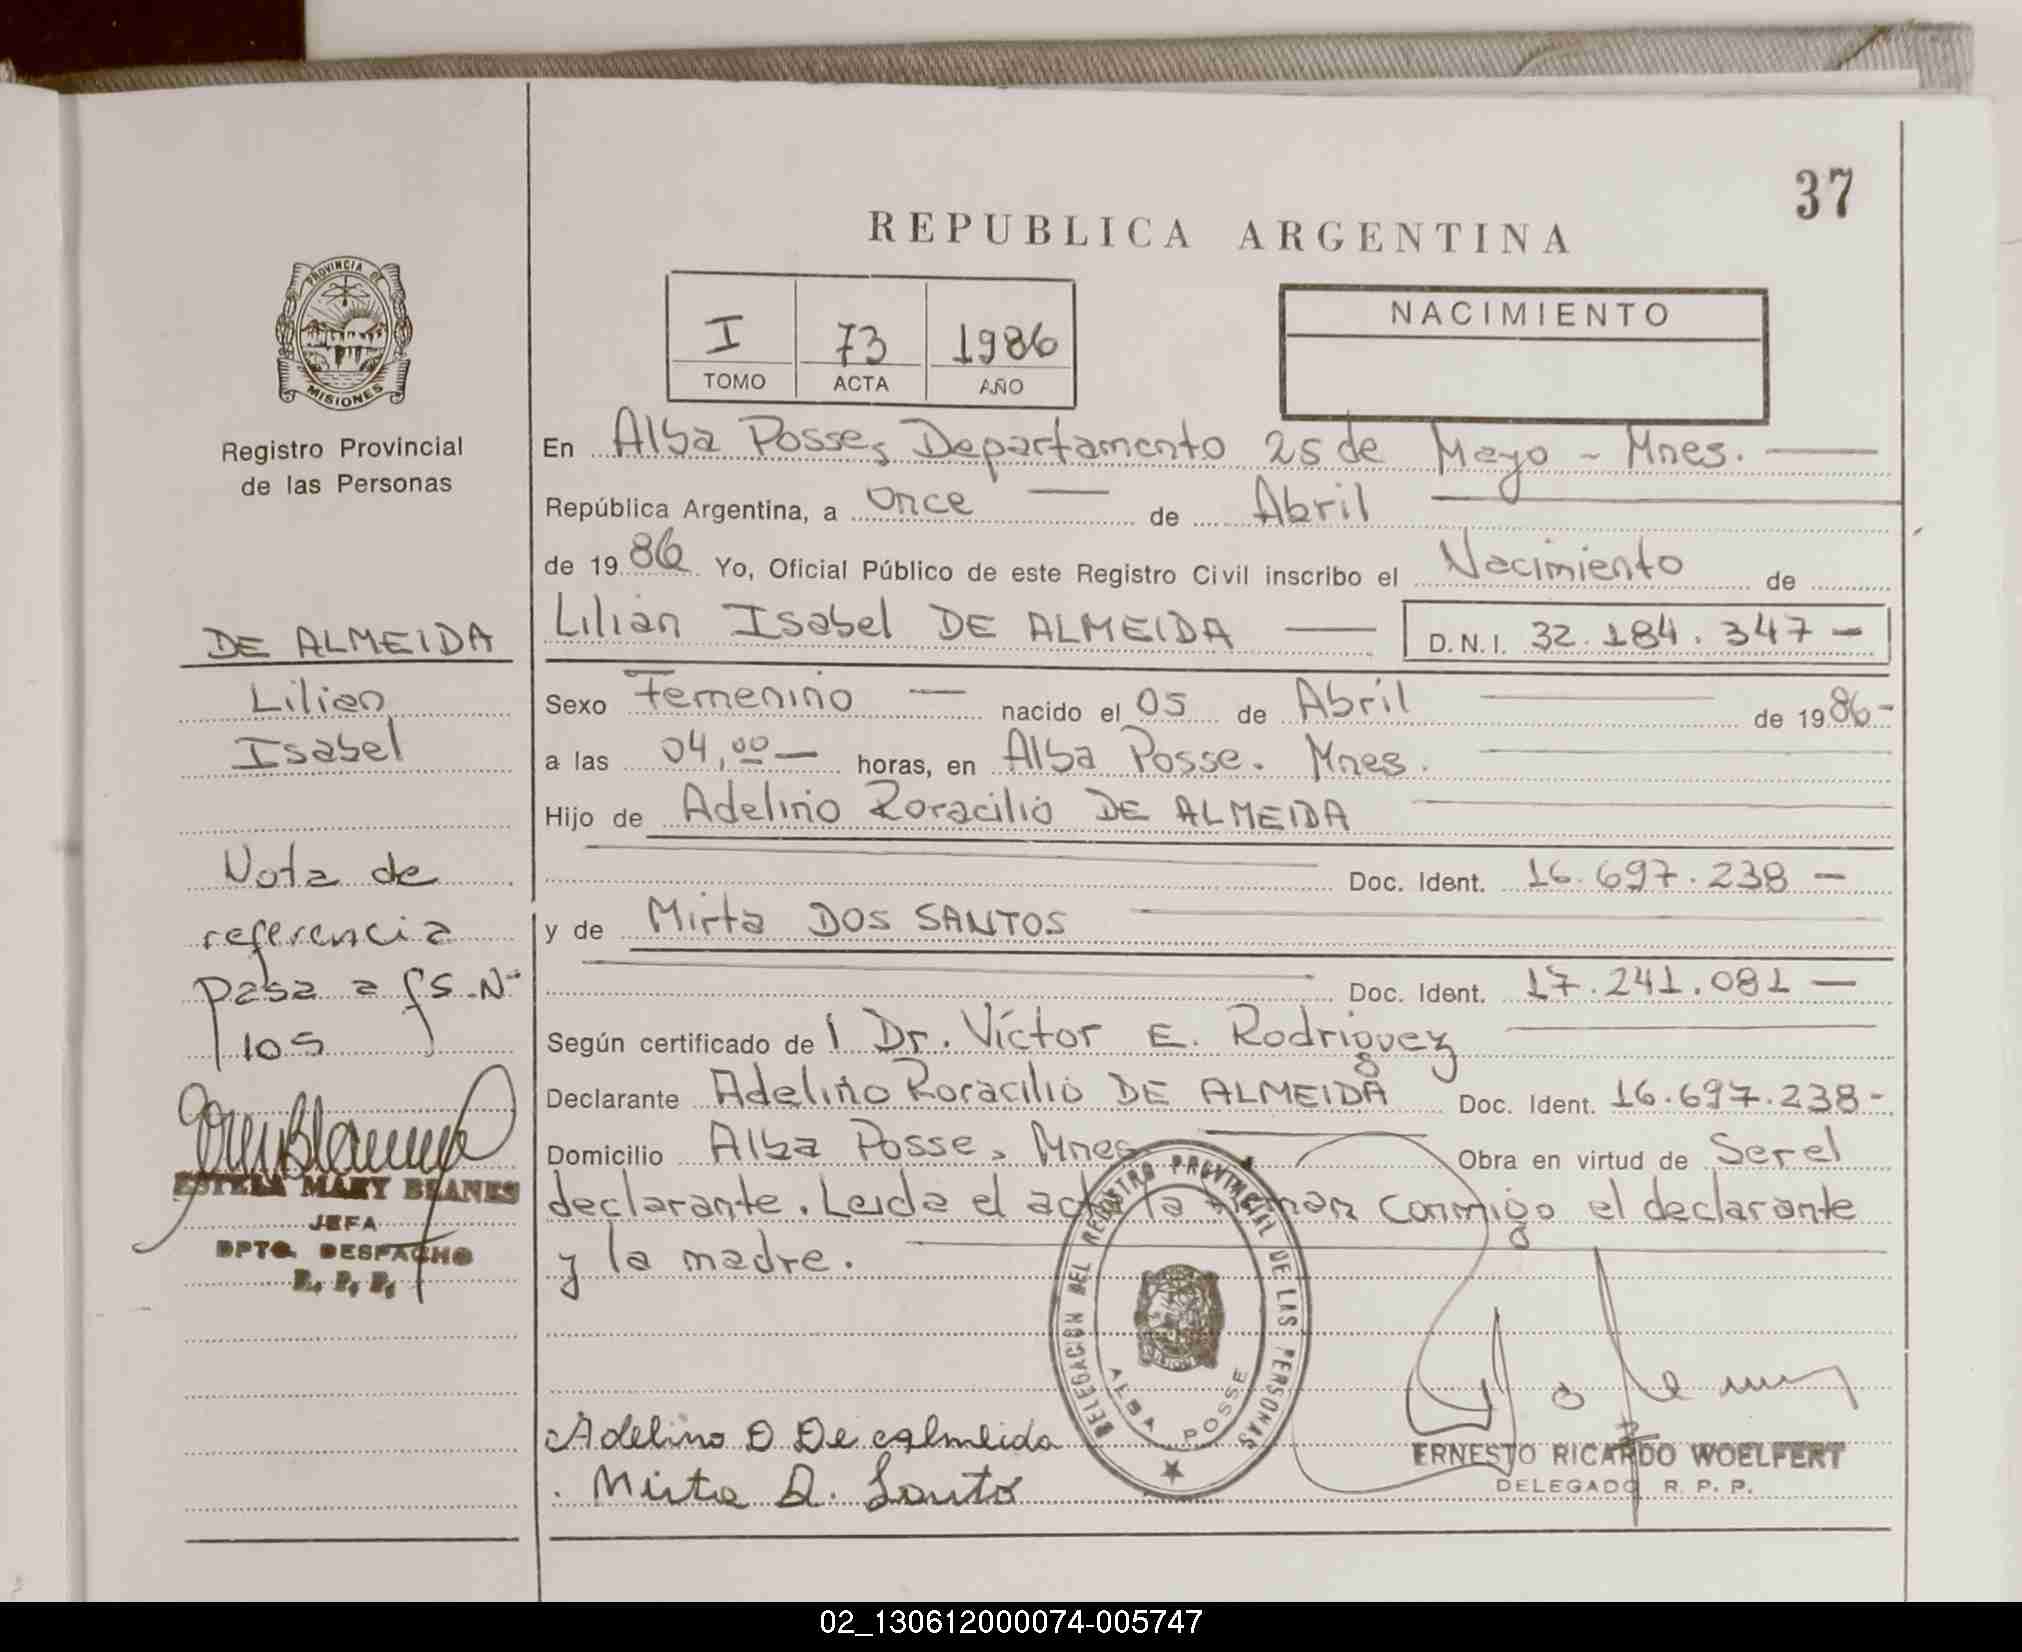 37
REPUBLICA ARGENTINA
PROVINCIA DE
MISIONES
Registro Provincial
de las Personas
I 73 1986
TOMO ACTA AÑO
NACIMIENTO
En Alba Posse, Departamento 25 de Mayo - Mnes.
República Argentina, a once de Abril
de 1986 Yo, Oficial Público de este Registro Civil inscribo el Nacimiento de
Lilian Isabel DE ALMEIDA D.N.I. 32.184.347-
Sexo Femenino nacido el 05 de Abril de 1986-
a las 04,00 horas, en Alba Posse. Mnes.
Hijo de Adelino Roracilio DE ALMEIDA
Doc. Ident. 16.697.238
y de Mirta DOS SANTOS
Doc. Ident. 17.241.081
Según certificado de l Dr. Víctor E. Rodriguez
Declarante Adelino Roracilio DE ALMEIDA Doc. Ident. 16.697.238-
Domicilio Alba Posse, Mnes Obra en virtud de Ser el
declarante. Leida el acta la firman conmigo el declarante
y la madre.
DE ALMEIDA
Lilian
Isabel
Nota de
referencia
pasa a fs. Nº
105
ESTELA MARY BLANES
JEFA
DPTO. DESPACHO
R. P. P.
DELEGACION DEL REGISTRO PROVINCIAL DE LAS PERSONAS
MISIONES
ALBA POSSE
Adelino O De almeida
Mirta D. Santo
ERNESTO RICARDO WOELFERT
DELEGADO R. P. P.
02_130612000074-005747